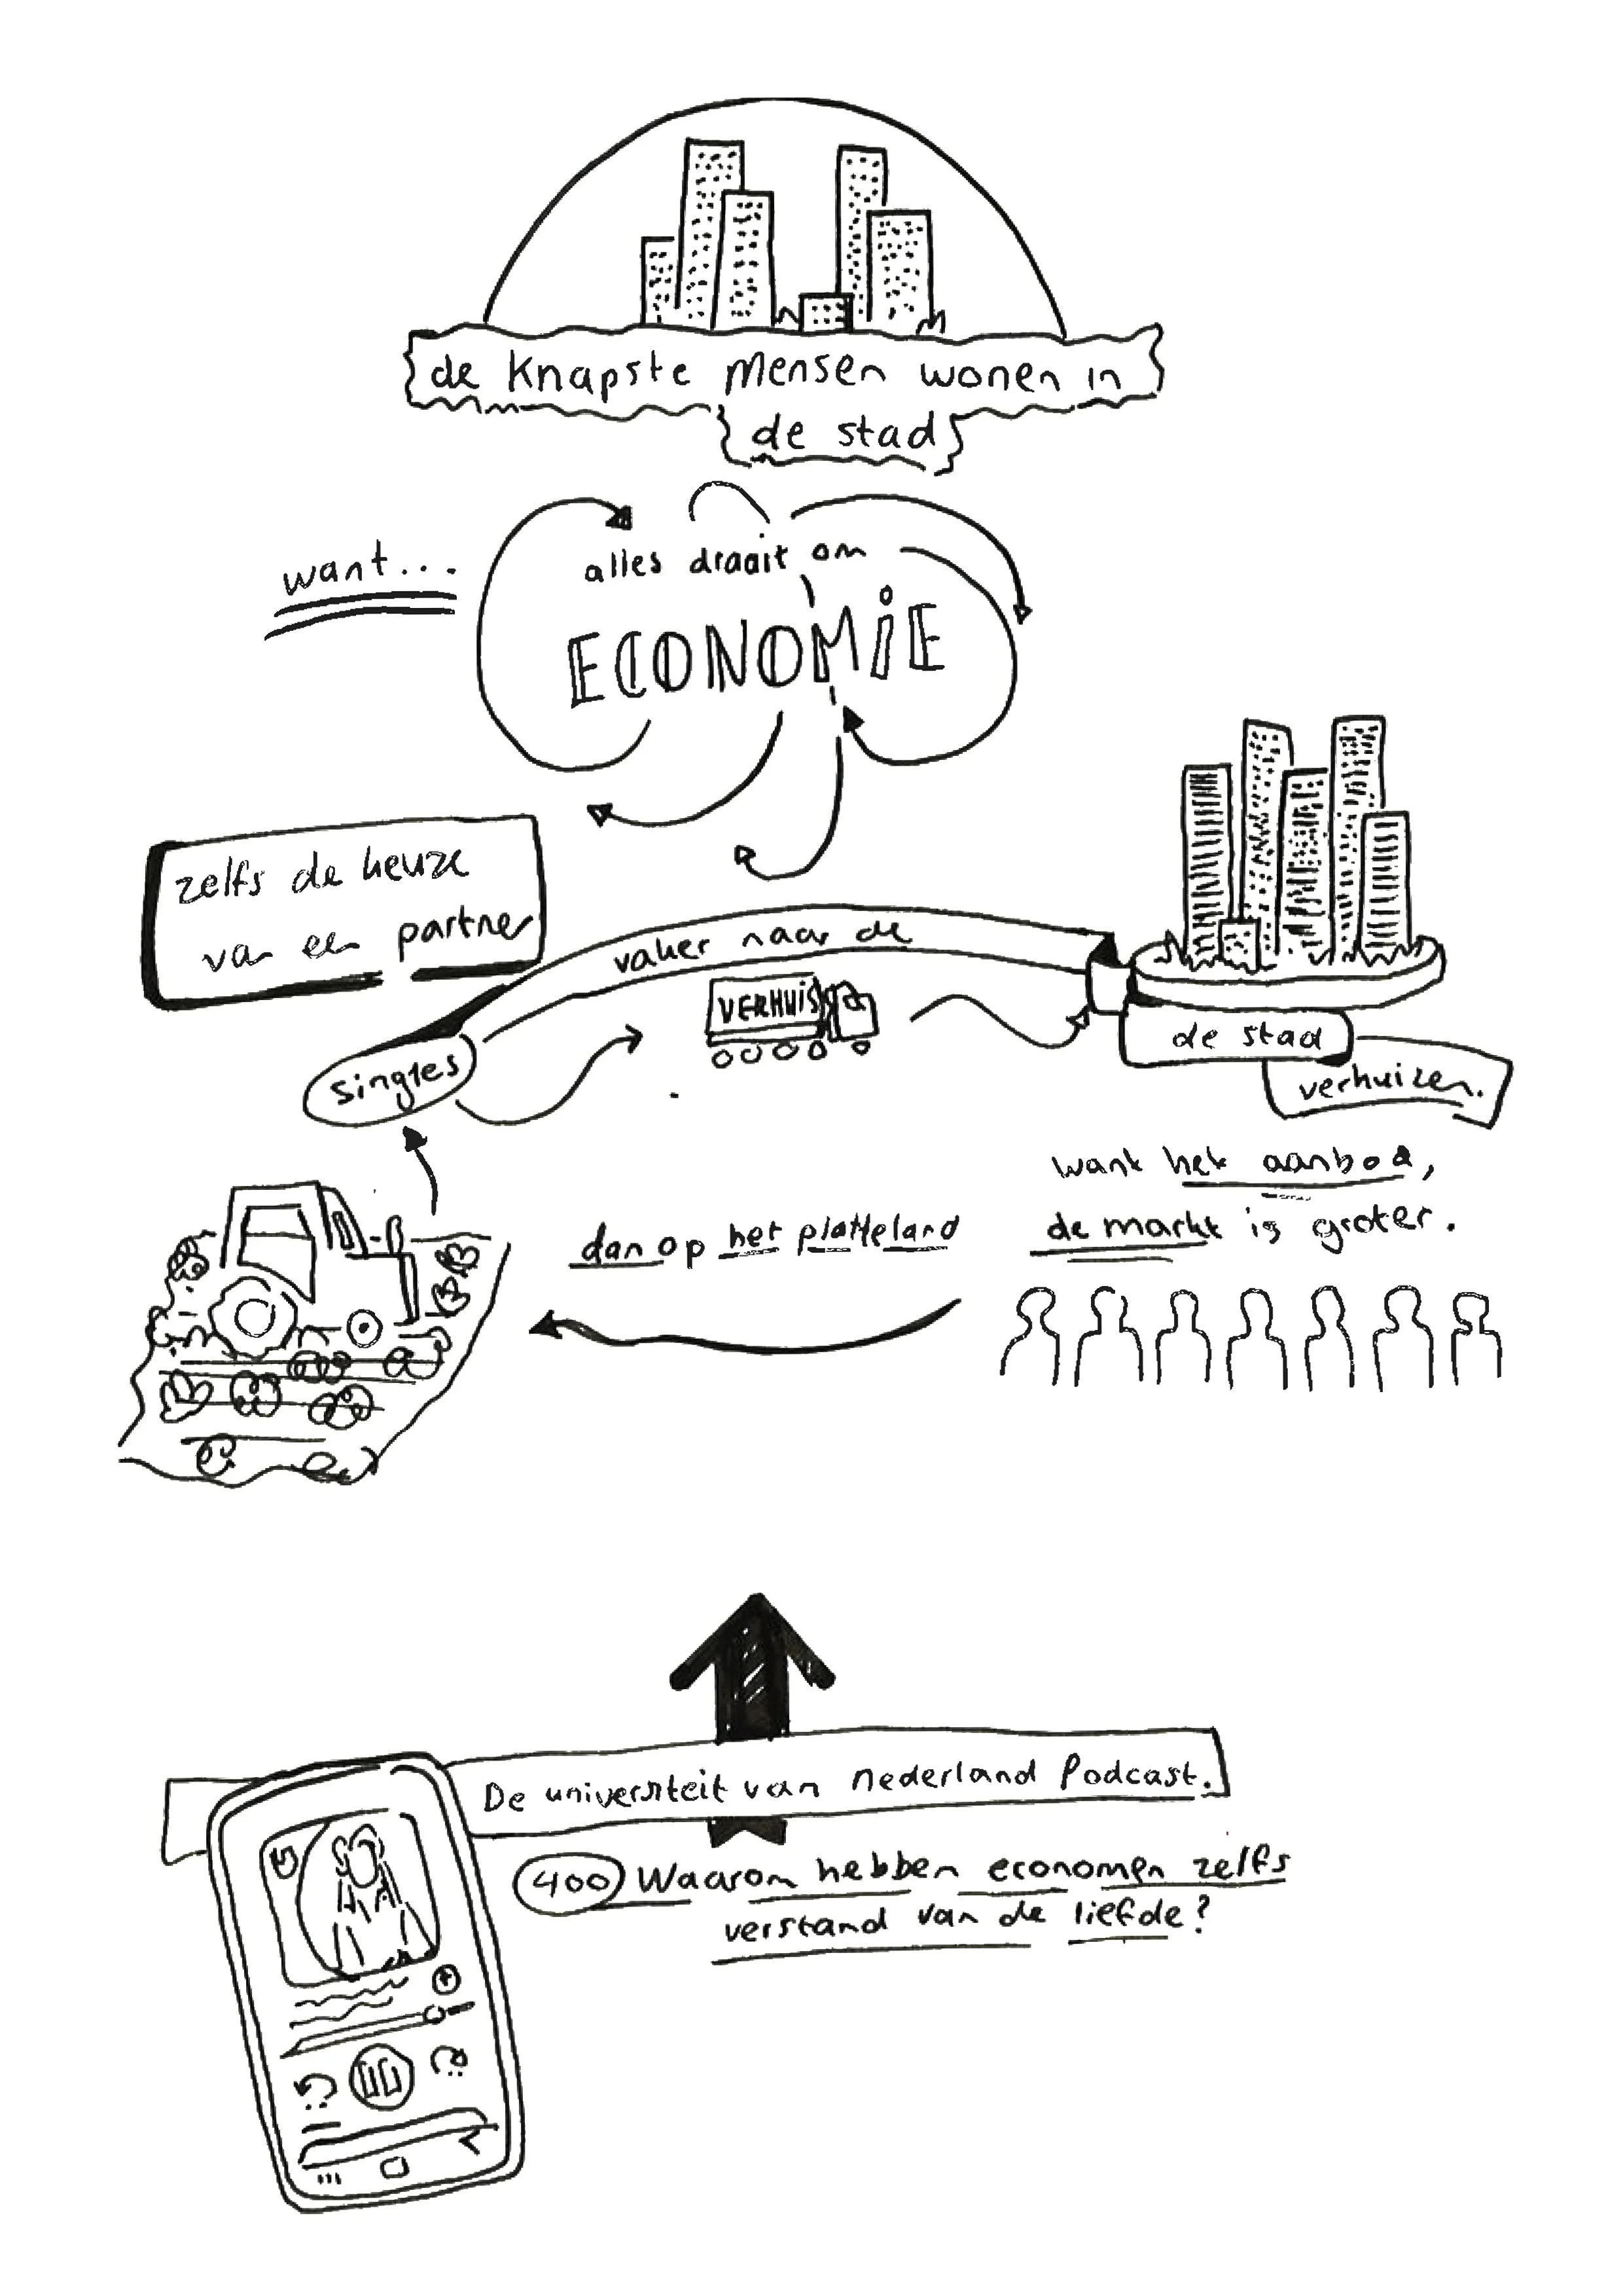 de knapste mensen wonen in
de stad
want...
alles draait om
ECONOMiE
zelfs de keuze
van een partner
singles
vaker naar de
VERHUIS
de stad
verhuizen.
want het aanbod,
de markt is groter.
dan op het platteland
De universiteit van nederland Podcast.
400 Waarom hebben economen zelfs
verstand van de liefde?